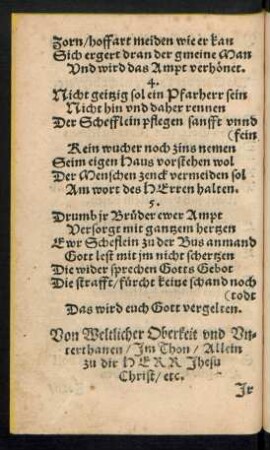 Zorn/hoffart meiden wie er kan
Sich ergert dran der gmeine Man
Vnd wird das Ampt verhönet.
4.
Nicht geitzig sol ein Pfarherr sein
Nicht hin vnd daher rennen
Der Schefflein pflegen sanfft vnnd
(fein
Kein wucher noch zins nemen
Seim eigen Haus vorstehen wol
Der Menschen zenck vermeiden sol
Am wort des HErren halten.
5.
Drumb jr Brüder ewer Ampt
Versorgt mit gantzem hertzen
Ewr Scheflein zu der Bus anmand
Gott lest mit jm nicht schertzen
Die wider sprechen Gotts Gebot
Die strafft/fürcht keine schand noch
(todt
Das wird euch Gott vergelten.
Von Weltlicher Oberkeit vnd Vn-
terthanen/Im Thon/Allein
zu dir HERR Jhesu
Christ/etc.
Jr